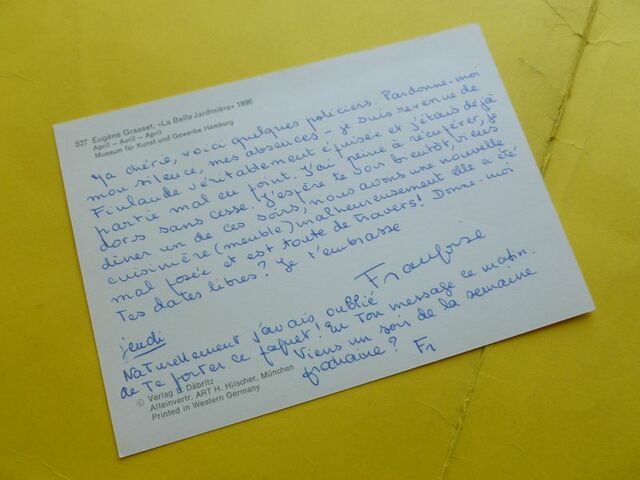 527 Eugène Grasset, «La Belle Jardinière» 1896
April – Avril – April
Museum für Kunst und Gewerbe Hamburg
Ma chérie, voici quelques policiers. Pardonne-moi
mon silence, mes absences – je suis revenue de
Finlande véritablement épuisée et j'étais déjà
partie mal en point. J'ai peine à récupérer, je
dors sans cesse. J'espère te voir bientôt, viens
dîner un de ces soirs, nous avons une nouvelle
cuisinière (meuble) malheureusement elle a été
mal posée et est toute de travers! Donne-moi
tes dates libres? Je t'embrasse
Françoise
jeudi
Naturellement j'avais oublié
de te porter ce paquet! Eu ton message ce matin.
Viens un soir de la semaine
prochaine? Fr
© Verlag D. Däbritz
Alleinvertr. ART H. Hilscher, München
Printed in Western Germany